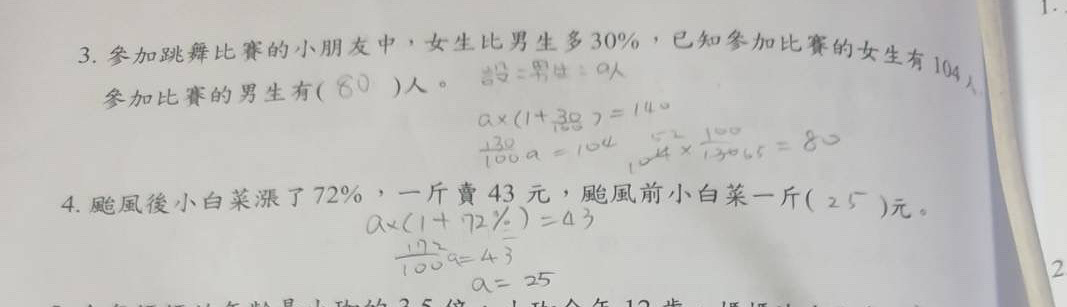 1.
3. 參加跳舞比賽的小朋友中，女生比男生多30%，已知參加比賽的女生有104人
參加比賽的男生有( 80 )人。 設：男生：a人
a×(1+30/100)=140
130/100 a=104 104 52 × 100/130 65 = 80
4. 颱風後小白菜漲了72%，一斤賣 43 元，颱風前小白菜一斤( 25 )元。
a×(1+72%)=43
172/100 a=43
a= 25
2